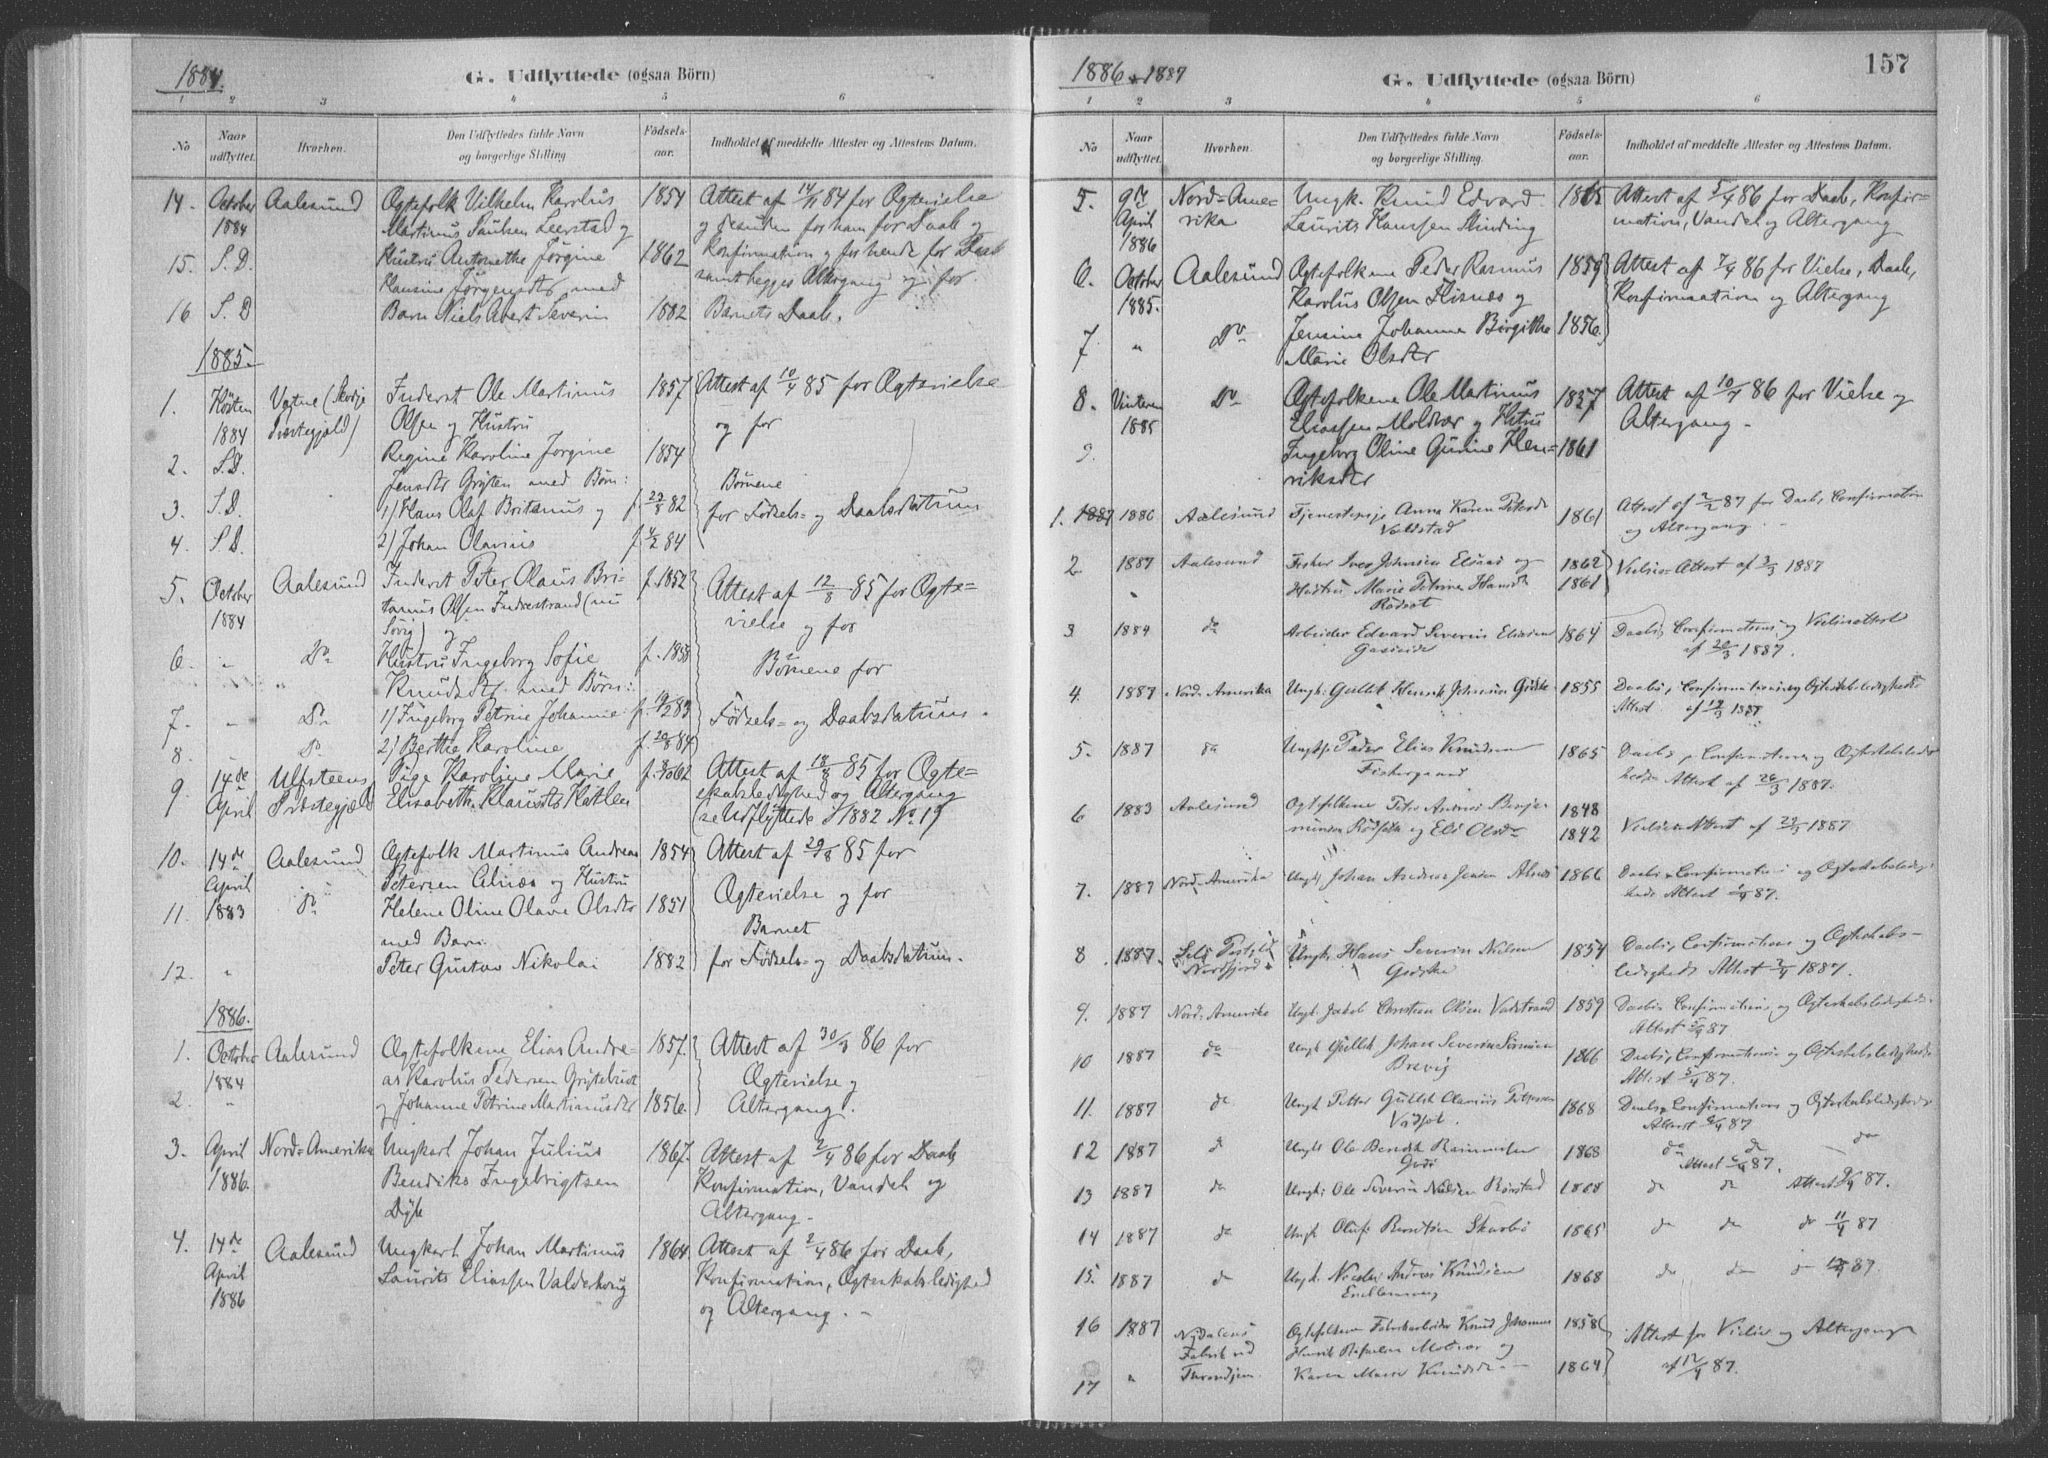 1884.
G. Udflyttede (ogsaa Börn)
1 2 3 4 5 6
No
Naar udflyttet.
Hvorhen.
Den Udflyttedes fulde Navn
og borgerlige Stilling
Födsels-
aar.
Indholdet af meddelte Attester og Attestens Datum.
14. October Aalesund Ægtefolk Vilhelm Karolus 1854 Attest af 14/11 84 for Ægtevielse
1884 Martinus Paulsen Leerstad og og desuden for ham for Daab og
15. S.D. Hustru Antonethe Jörgine 1862 Konfirmation og for hende for Daab
Hansine Jörgensdtr med samt begges Altergang og for
16 S.D Barn Niels Abert Severin 1882 Barnets Daab.
1885.
1. Hösten Vatne (Skodje Inderst Ole Martinus 1857 Attest af 10/4 85 for Ægtevielse
1884 Præstegjæld) Olsen og Hustru og for
2. S.D. Regine Karoline Jörgine 1854
Jensdtr Gryten med Börn: Börnene
3. S.D. 1) Hans Olaf Britanus og f. 29/8 82 for Födsels- og Daabsdatum
4. S.D. 2) Johan Olavius f. 4/2 84
5. October Aalesund Inderst Peter Olaus Bri- f. 1852 Attest af 12/8 85 for Ægte-
1884 tanus Olsen Indrestrand (nu vielse og for
Sörig) og
6. " Do Hustru Ingeborg Sofie f. 1858 Börnene for
Knudsdtr med Börn:
7. " Do 1) Ingeborg Petrine Johanne f. 19/2 83 Födsels- og Daabsdatum.
8. " Do 2) Berthe Karoline f. 20/8 84
9. 14de Ulfsteens Pige Karoline Marie f. 3/10 62 Attest af 18/8 85 for Ægte-
April Præstegjæld Elisabeth Klausdtr Hatlen skabsledighed og Altergang
(se Udflyttede i 1882 No 19
10. 14de Aalesund Ægtefolk Martinus Andreas 1854 Attest af 29/8 85 for
April Petersen Alnæs og Hustru Ægtevielse og for
11. 1883 Do Helene Oline Olave Olsdtr 1851
med Barn Barnet
12. " Peter Gustav Nikolai 1882 for Födsels- og Daabsdatum.
1886.
1. October Aalesund Ægtefolkene Elias Andre- 1857. Attest af 30/3 86 for
1884 as Karolus Pedersen Ægtevielse og
2. " og Johanne Petrine Martinusdtr 1856. Altergang.
3. April Nord-Amerika Ungkarl Johan Julius 1867. Attest af 2/4 86 for Daab,
1886. Bendiks Ingebrigtsen Konfirmation, Vandel og
Dyb Altergang.
4. 14de Aalesund Ungkarl Johan Martinus 1864. Attest af 2/4 86 for Daab,
April Laurits Eliassen Valderhoug Konfirmation, Ægteskabsledighed
1886 og Altergang. -
1886 & 1887
G. Udflyttede (ogsaa Börn)
157
1 2 3 4 5 6
No
Naar udflyttet.
Hvorhen.
Den Udflyttedes fulde Navn
og borgerlige Stilling
Födsels-
aar.
Indholdet af meddelte Attester og Attestens Datum.
5. 9de Nord-Ame- Ungk. Knud Edvard 1865 Attest af 5/4 86 for Daab, Konfir-
April rika Laurits Hanssen mation, Vandel og Altergang
1886
6. October Aalesund Ægtefolkene Peder Rasmus 1859 Attest af 7/4 86 for Vielse, Daab,
1885. Karolus Olsen og Konfirmation og Altergang
7 " Do Jensine Johanne Birgithe 1856.
Marie Olsdtr
8. Vinteren Do Ægtefolkene Ole Martinus 1857 Attest af 10/4 86 for Vielse og
1885 Eliassen Moldvær og Hstru Altergang -
9. Ingeborg Oline Gurine Hen- 1861
riksdtr
1. 1887 1886 Aalesund Tjenestepige Anna Karen 1861 Attest af 2/2 87 for Daab, Confirmation
og Altergang.
2 1887 Aalesund Fisker Iver Johnsen og 1862 Vielses-Attest af 3/3 1887
" Hustru Marie Petrine Hansdtr 1861
3 1884 do Arbeider Edvard Severin 1864 Daabs, Confirmations og Vielsesattest
Gaseide af 20/3 1887.
4. 1887 Nord-Amerika Ungk. Gullik Henrik Johnsen Godske 1855 Daabs, Confirmations og Ægteskabsledigheds-
Attest af 19/3 1887
5. 1887 do Ungk. Peder Elias Knudsen 1865 Daabs, Confirmations og Ægteskabsledig-
heds Attest af 26/3 1887.
6 1883 Aalesund Ægtefolkene Peter Andreas Benja- 1848
minsen og Eli Olsdtr 1842 Vielses Attest af 29/3 1887
7. 1887 Nord-Amerika Ungk. Johan Andreas Jensen Alnæs 1866 Daabs, Confirmations og Ægteskabsledig-
heds Attest 87.
8 1887. Nordfjord Ungk. Hans Severin Nielsen 1854 Daabs, Confirmations og Ægteskabs-
Godske ledigheds Attest 2/4 1887.
9. 1887 Nord-Amerika Ungk. Jakob Christian Olsen Valstrand 1859 Daabs, Confirmations og Ægteskabsledigheds-
Attest 87
10 1887 do Ungk. Gullik Johan Severin 1866 Daabs, Confirmations og Ægteskabsledigheds-
Brevig Attest 5/4 87.
11. 1887 do Ungk. Petter Gullik Petersen 1868 Daabs, Confirmations og Ægteskabsledigheds-
Attest 6/4 87
12 1887 do Ungk. Ole Bendik Rasmussen 1868 do do do
Attest 6/4 87.
13 1887 do Ungk. Ole Severin Nielsen 1868 do do Attest 9/4 87.
14 1887 do Ungk. Oluf Berntsen Skarbö 1865 do do do 11/4 87
15. 1887 do Ungk. Nicolai Andreas Knudsen 1868 do do do 87.
Emblemsvåg
16 1887 Nydalens Ægtefolkene Fabrikarbeider Knud Johannes 1858 Attest for Vielse og Altergang
Fabrik ved Henrik Moldvær og af 12/4 87.
17 " Throndhjem Karen Marie Knudsdtr 1864